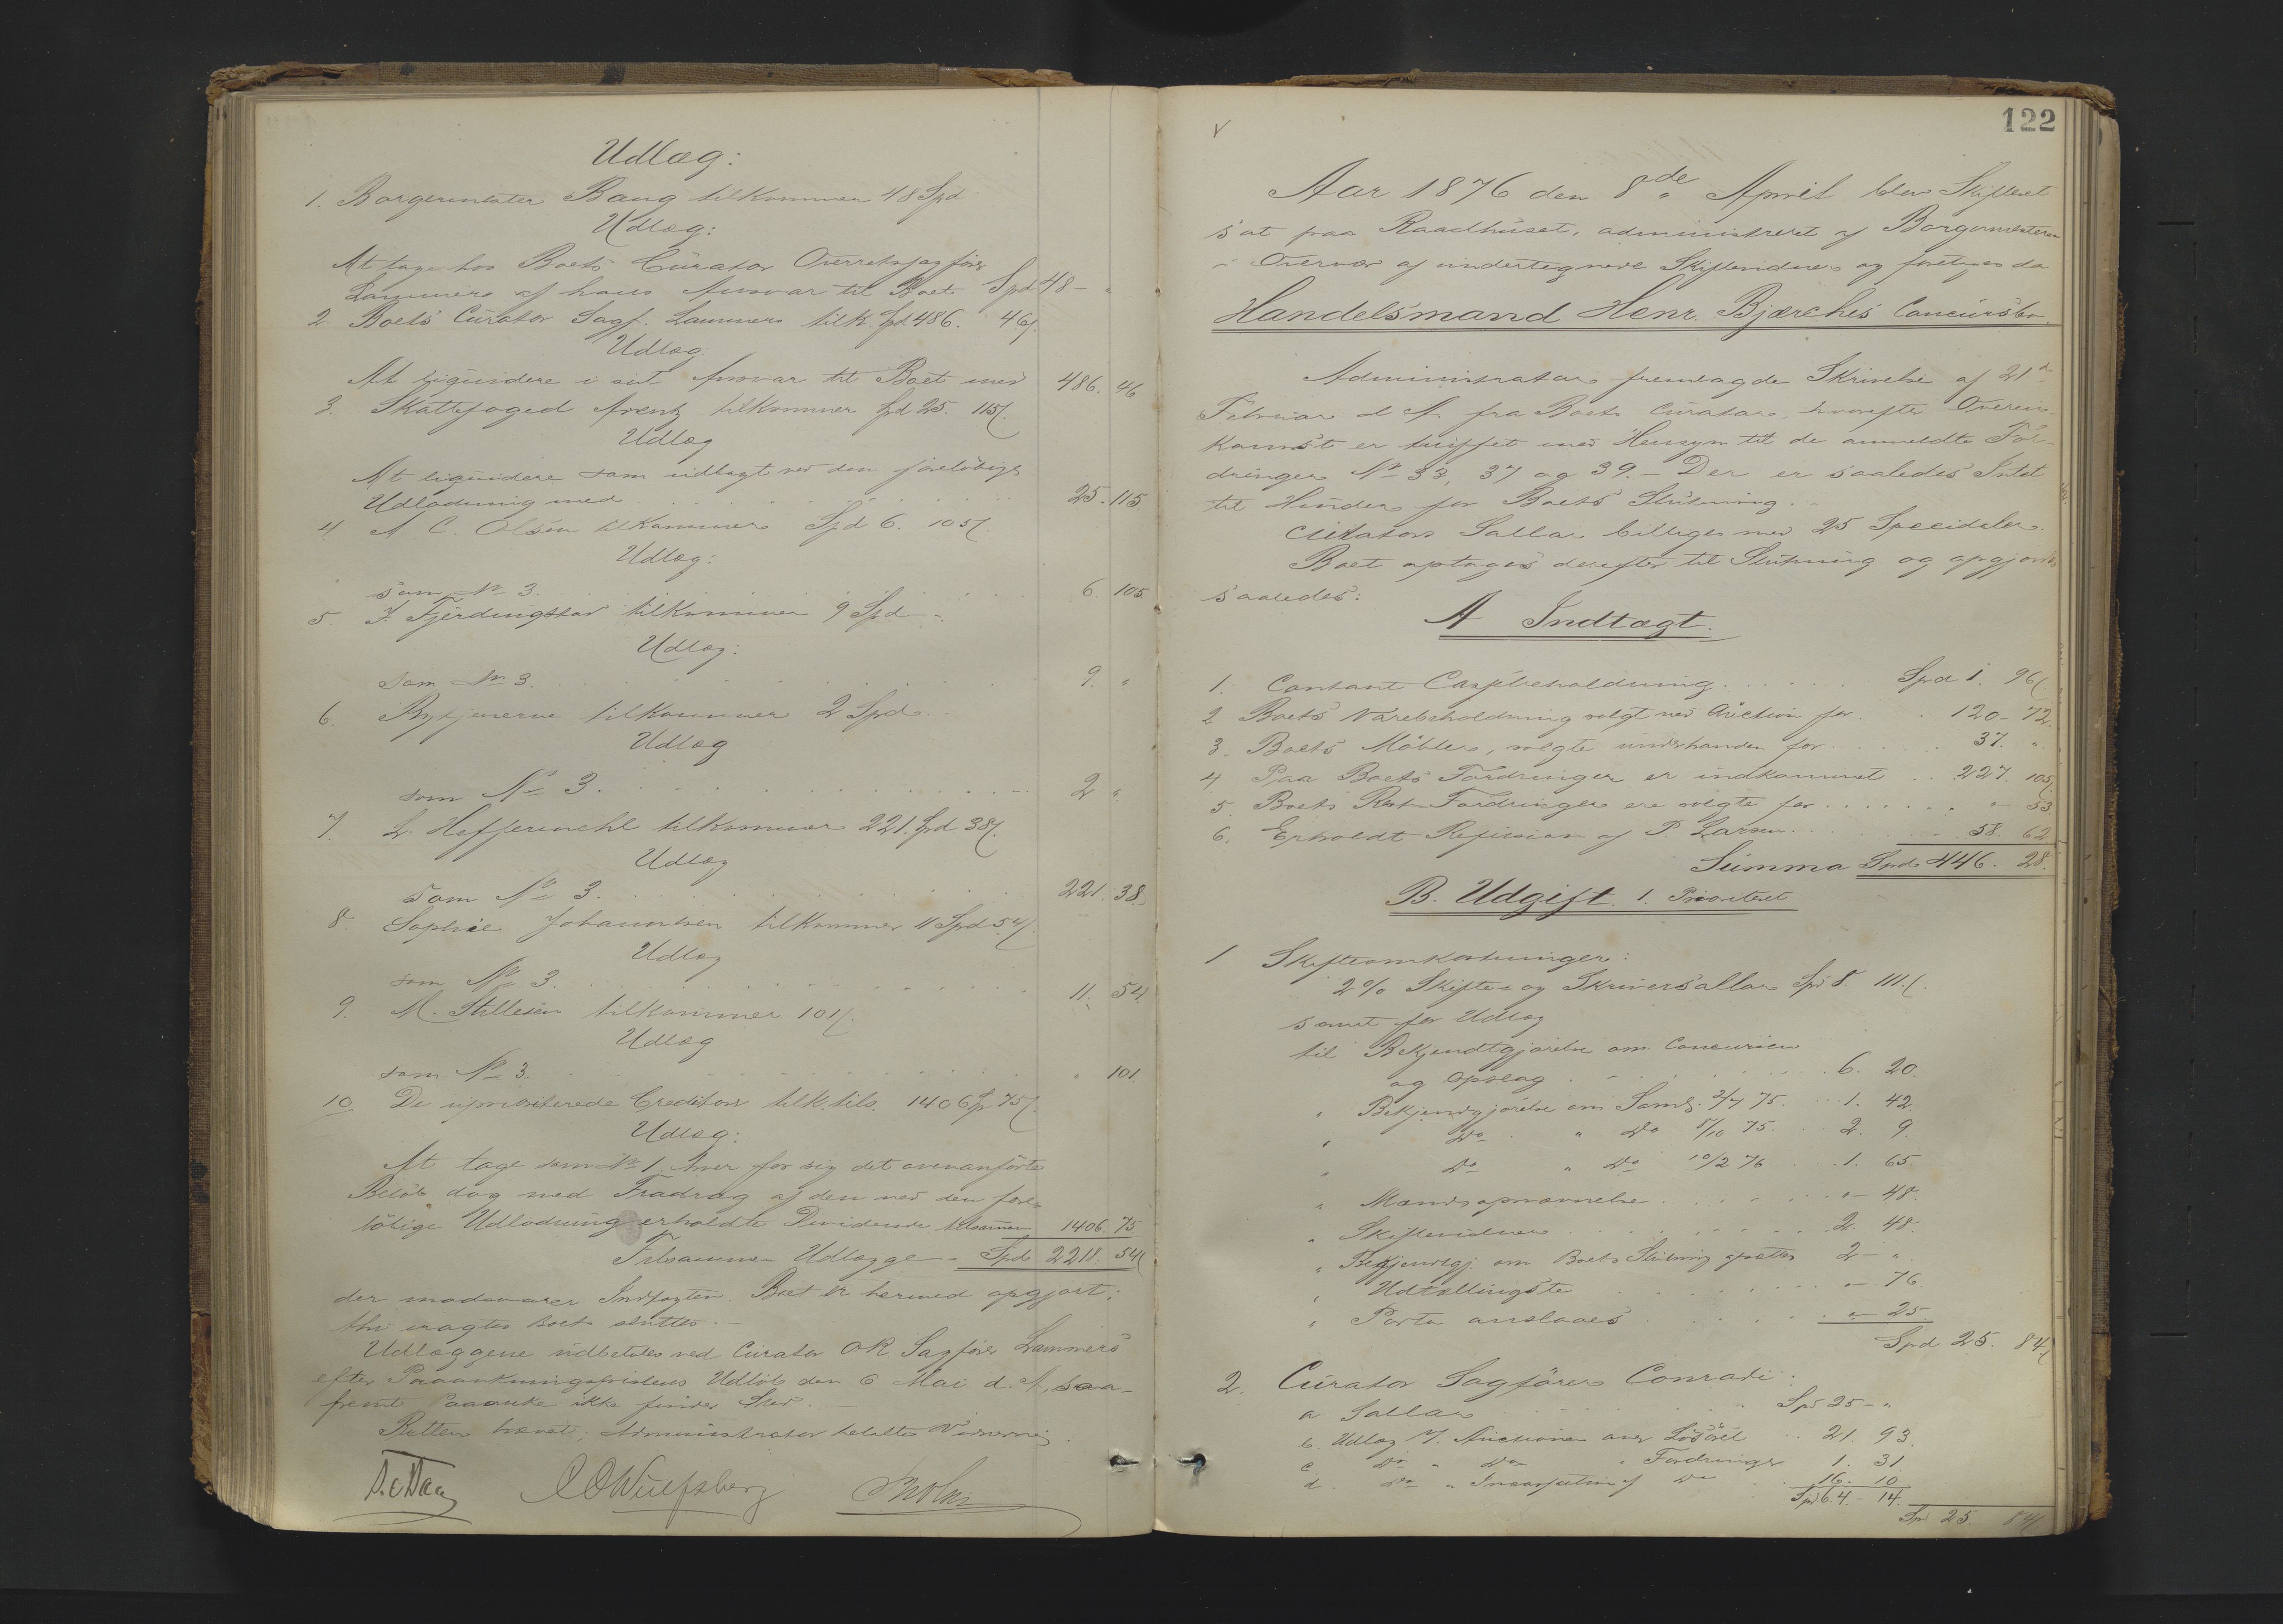 Udlæg:
1. Borgermester Bang tilkommer 48 Spd
Udlæg:
At tage hos Boets Curator Overretssagfører
Lammers af hans Ansvar til Boet Spd 48 - "
2 Boets Curator Sagf. Lammers tilk. Spd 486. 46ß.
Udlæg
At liqvidere i sit Ansvar til Boet med 486. 46
3. Skattefoged Arentz tilkommer Spd 25. 115ß.
Udlæg
At liqvidere som udlagt ved den foreløbige
Udlodning med 25. 115
4 A C. Olsen tilkommer Spd 6. 105ß.
Udlæg:
som No 3. 6. 105.
5. J. Fjerdingstad tilkommer 9 Spd -.
Udlæg:
som No 3. 9. "
6. Bytjenerne tilkommer 2 Spd.
Udlæg
som No 3. 2 ".
7. L. Heffermehl tilkommer 221. Spd 38ß.
Udlæg
som No 3. 221. 38.
8. Sophie Johannesen tilkommer 11 Spd 54ß.
Udlæg
som No 3. 11. 54
9. M. Stillesen tilkommer 101ß.
Udlæg
som No 3. " 101.
10 De uprioriterede Creditorer tilk. tils. 1406 Sp 75ß.
Udlæg:
At tage som No 1. hver for sig det ovenanførte
Beløb dog med Fradrag af den ved den fore-
løbige Udlodning erholdte Dividende tilsammen 1406. 75
Tilsammen Udlægge - Spd 2218. 54ß
der modsvarer Indtægten. Boet er hermed opgjort;
thi eragtes Boets sluttet. -
Udlæggene udbetales ved Curator O R. Sagfører Lammers
efter Paaankningsfristens Udløb den 6 Mai d. A, saa-
fremt Paaanke ikke finder Sted. -
Retten hævet; Administrator betalte Vidnerne.
C O Wulfsberg
122
Aar 1876 den 8de April blev Skifteret
sat paa Raadhuset, administreret af Borgermesteren
i Overvær af undertegnede Skiftevidner og foretoges da
Handelsmand Henr. Bjærches Concursbo.
Administrator fremlagde Skrivelse af 21de
Februar d A. fra Boets Curator, hvorefter Overens
komst er truffet med Hensyn til de anmeldte For-
dringer No 33, 37 og 39. - Der er saaledes Intet
til Hinder for Boets Slutning. -
Curators Sallar billiges med 25 Speciedaler.
Boet optages derefter til Slutning og opgjøres
saaledes:
A Indtægt.
1. Contant Cassebeholdning Spd 1. 96ß.
2 Boets Varebeholdning solgt ved Auction for 120 - 72.
3. Boets Møbler, solgte underhaanden for 37. "
4 Paa Boets Fordringer er indkommet 227. 105.
5. Boets Rest Fordringer ere solgte for " - 53
6. Erholdt Refusion af P. Larsen 58. 62
Summa Spd 446. 28.
B. Udgift. 1. Prioritet
1 Skifteomkostninger:
2% Skifte- og Skriversallar Spd 8. 111.ß.
samt for Udlæg
til Bekjendtgjørelse om Concursen
og Opslag 6. 20.
" Bekjendtgjørelse om Saml. 2/7 75. 1. 42
" Do " Do 5/10 75. 2. 9.
" Do " Do 10/2 76 1. 65.
" Mandsopnævnelse " - 48.
" Skiftevidner 2. 48.
" Bekjendtgj. om Boets Slutning 2 - "
" Udtællingste " - 76
" Porto anslaaes " - 25
Spd 25. 84.ß
2. Curator Sagfører Conradi:
a Sallar Spd 25 - "
b. Udlæg v. Auctionen over Løsøret 21. 93.
c Do " Do " Fordringer 1. 31.
d. Do " Incassation af Do 16. 10
Spd 64. - 14.
Spd 25. 84ß